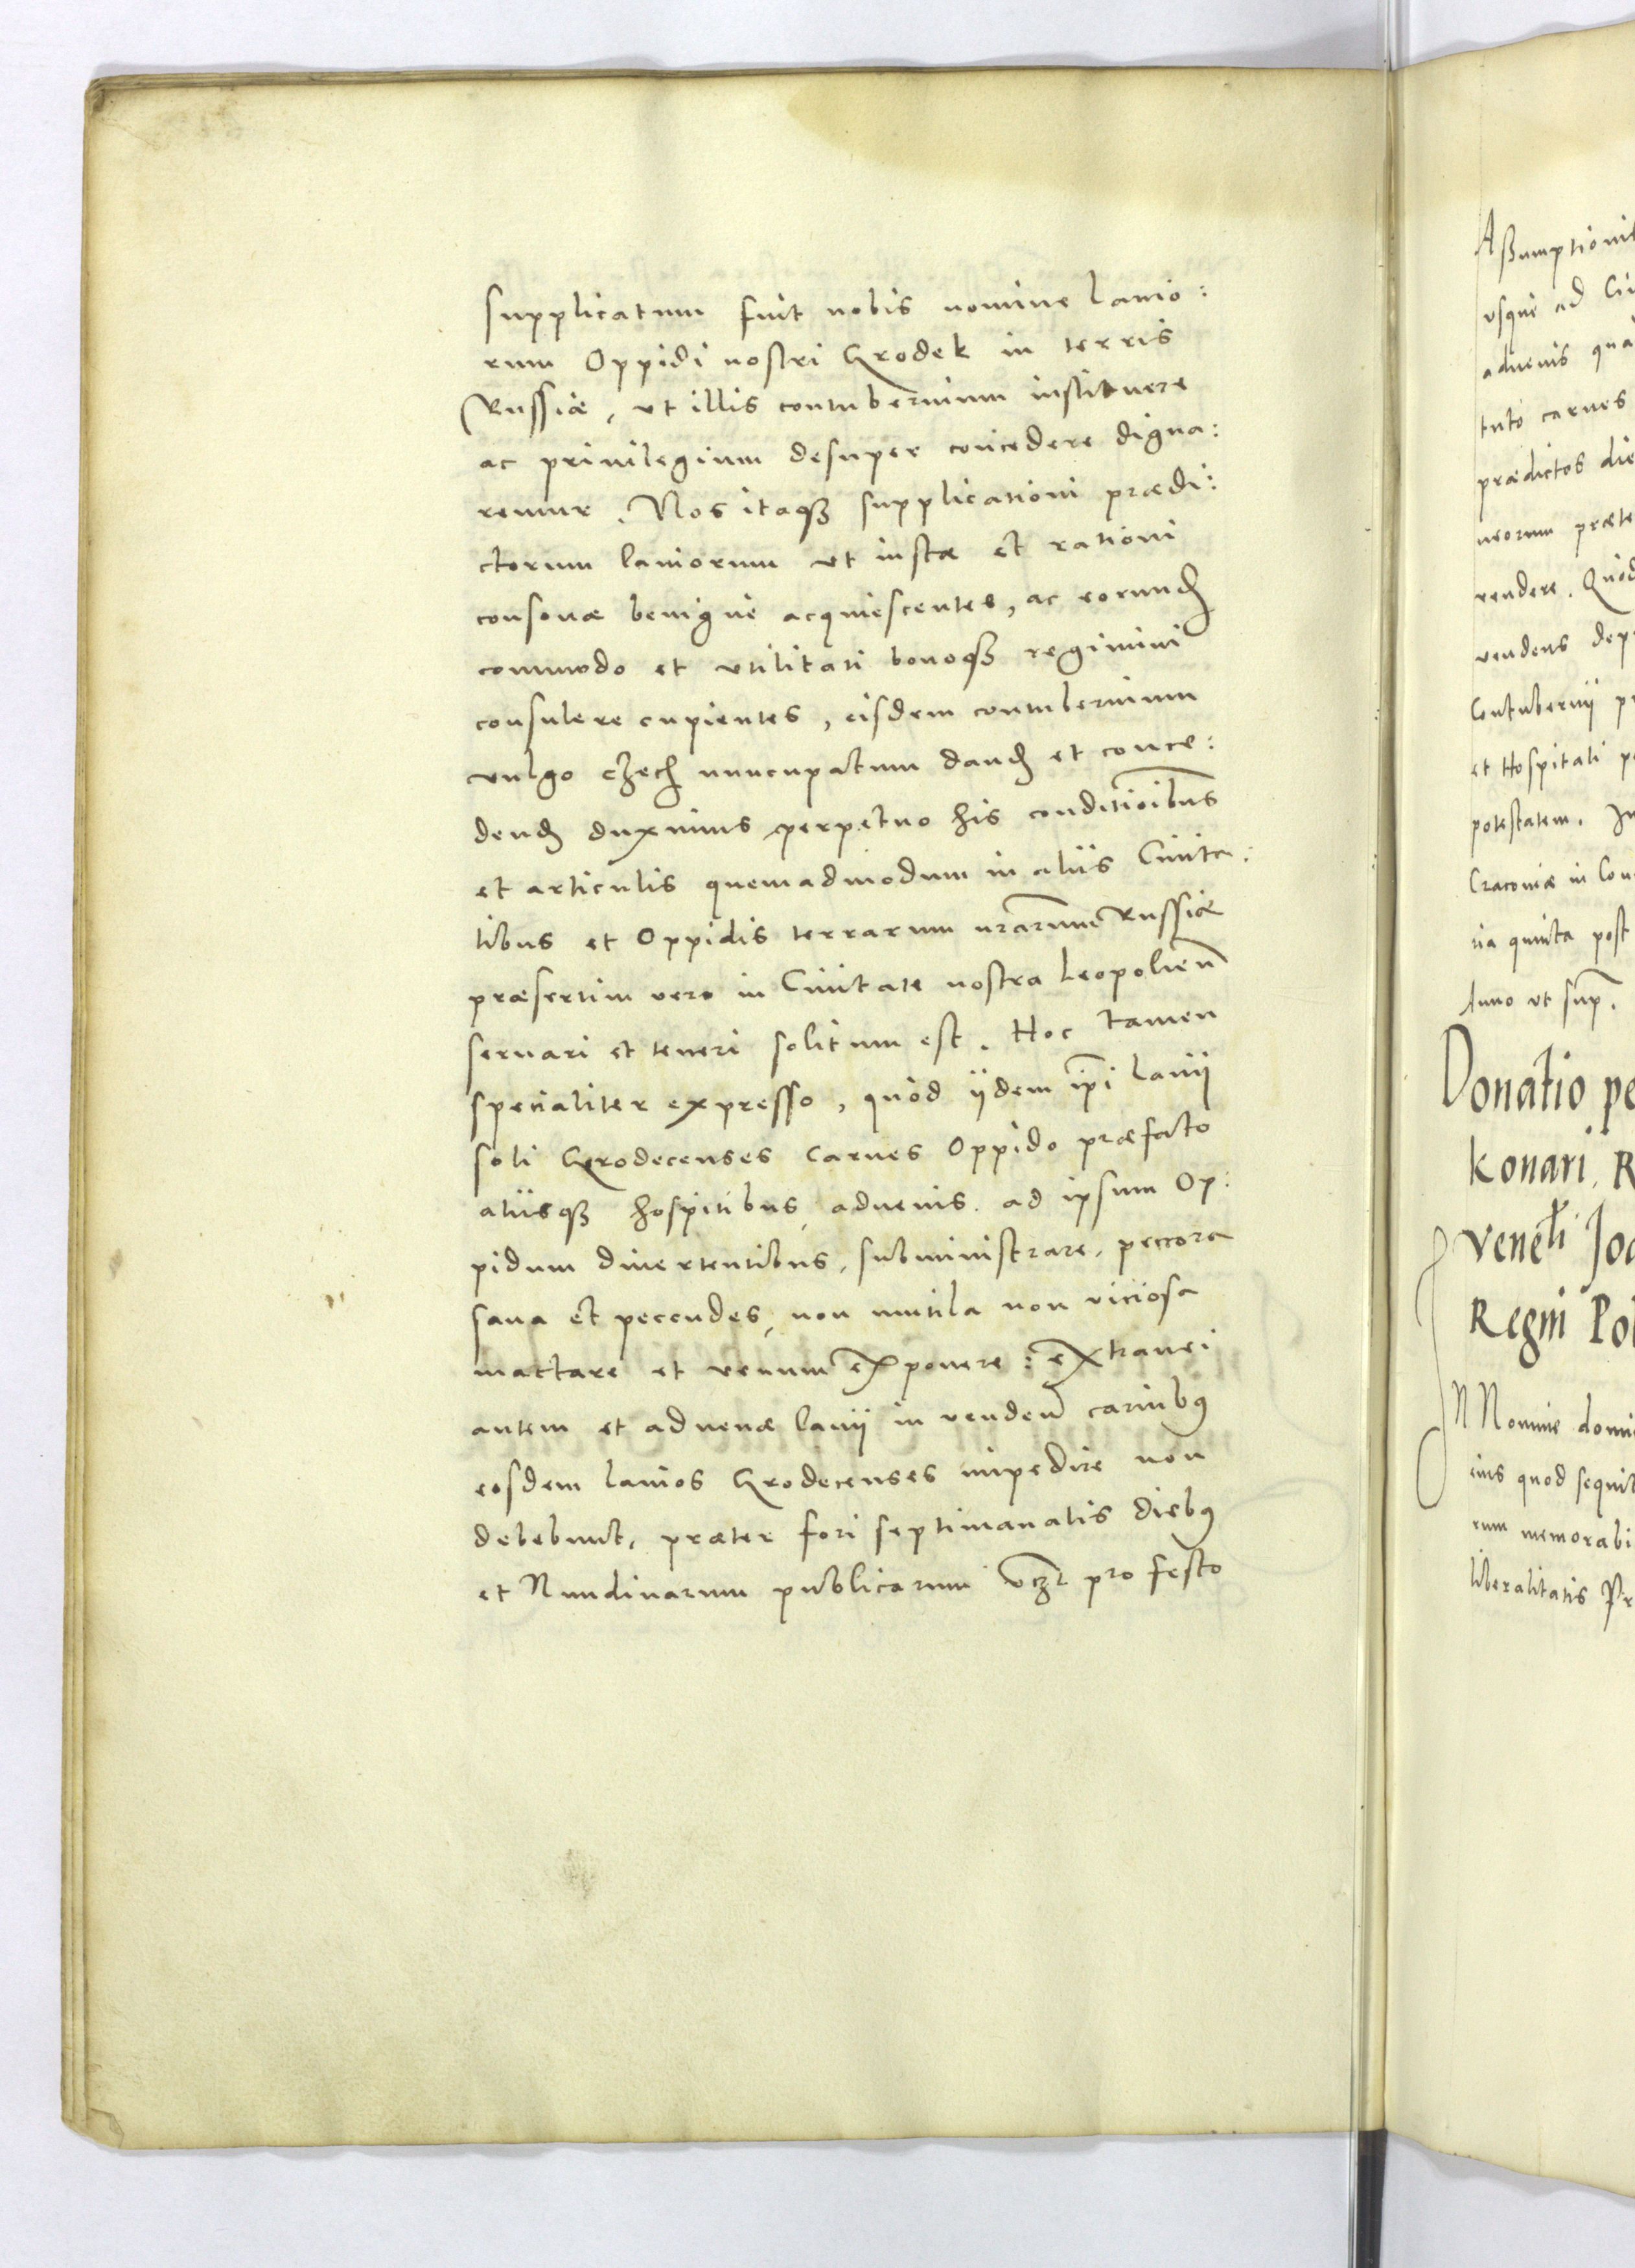 supplicatum fuit nobis nomine lanio:
rum Oppidi nostri Grodek in terris
Russiæ, ut illis contubernium instituere
ac privilegium desuper concedere digna:
remur. Nos itaqꝫ supplicationi prædi:
ctorum laniorum ut iustæ et rationi
consonæ benigne acquiescentes, ac eorund
commodo et utilitati bonoqꝫ regimini
consulere cupientes, eisdem contubernium
vulgo czech nuncupatum dand et conce:
dend duximus perpetuo his conditioibus
et articulis quemadmodum in aliis Civita:
tibus et Oppidis terrarum nrarum Russiæ
præsertim vero in Civitate nostra Leopolien
servari et teneri solitum est. Hoc tamen
specialiter expresso, quòd ijdem ipi lanij
soli Grodecenses carnes Oppido præfacto
aliisqꝫ hospitibus advenis ad ipsum Op:
pidum divertentibus, subministrare, peccora
sana et peccudes, non mutila non viciosa
mactare et venum exponere: extranei
autem et advenæ lanij in venden carnibꝰ
eosdem lanios Grodecenses impedire non
debebunt, præter fori septimanalis diebꝰ
et Nundinarum publicarum vcꝫt pro festo
Aßumptionis
usque ad
advenis
carnes
prædictos die
rendere.
vendens
Contubernij
et Hospitali
potestatem. In
Cracoviæ in
ria quinta post
Anno ut sup.
Donatio pe
Konari, R
Venel Joa
Regni Pol
N Nomine domi
eius quod sequit
rum memorabi
liberalitatis Pr